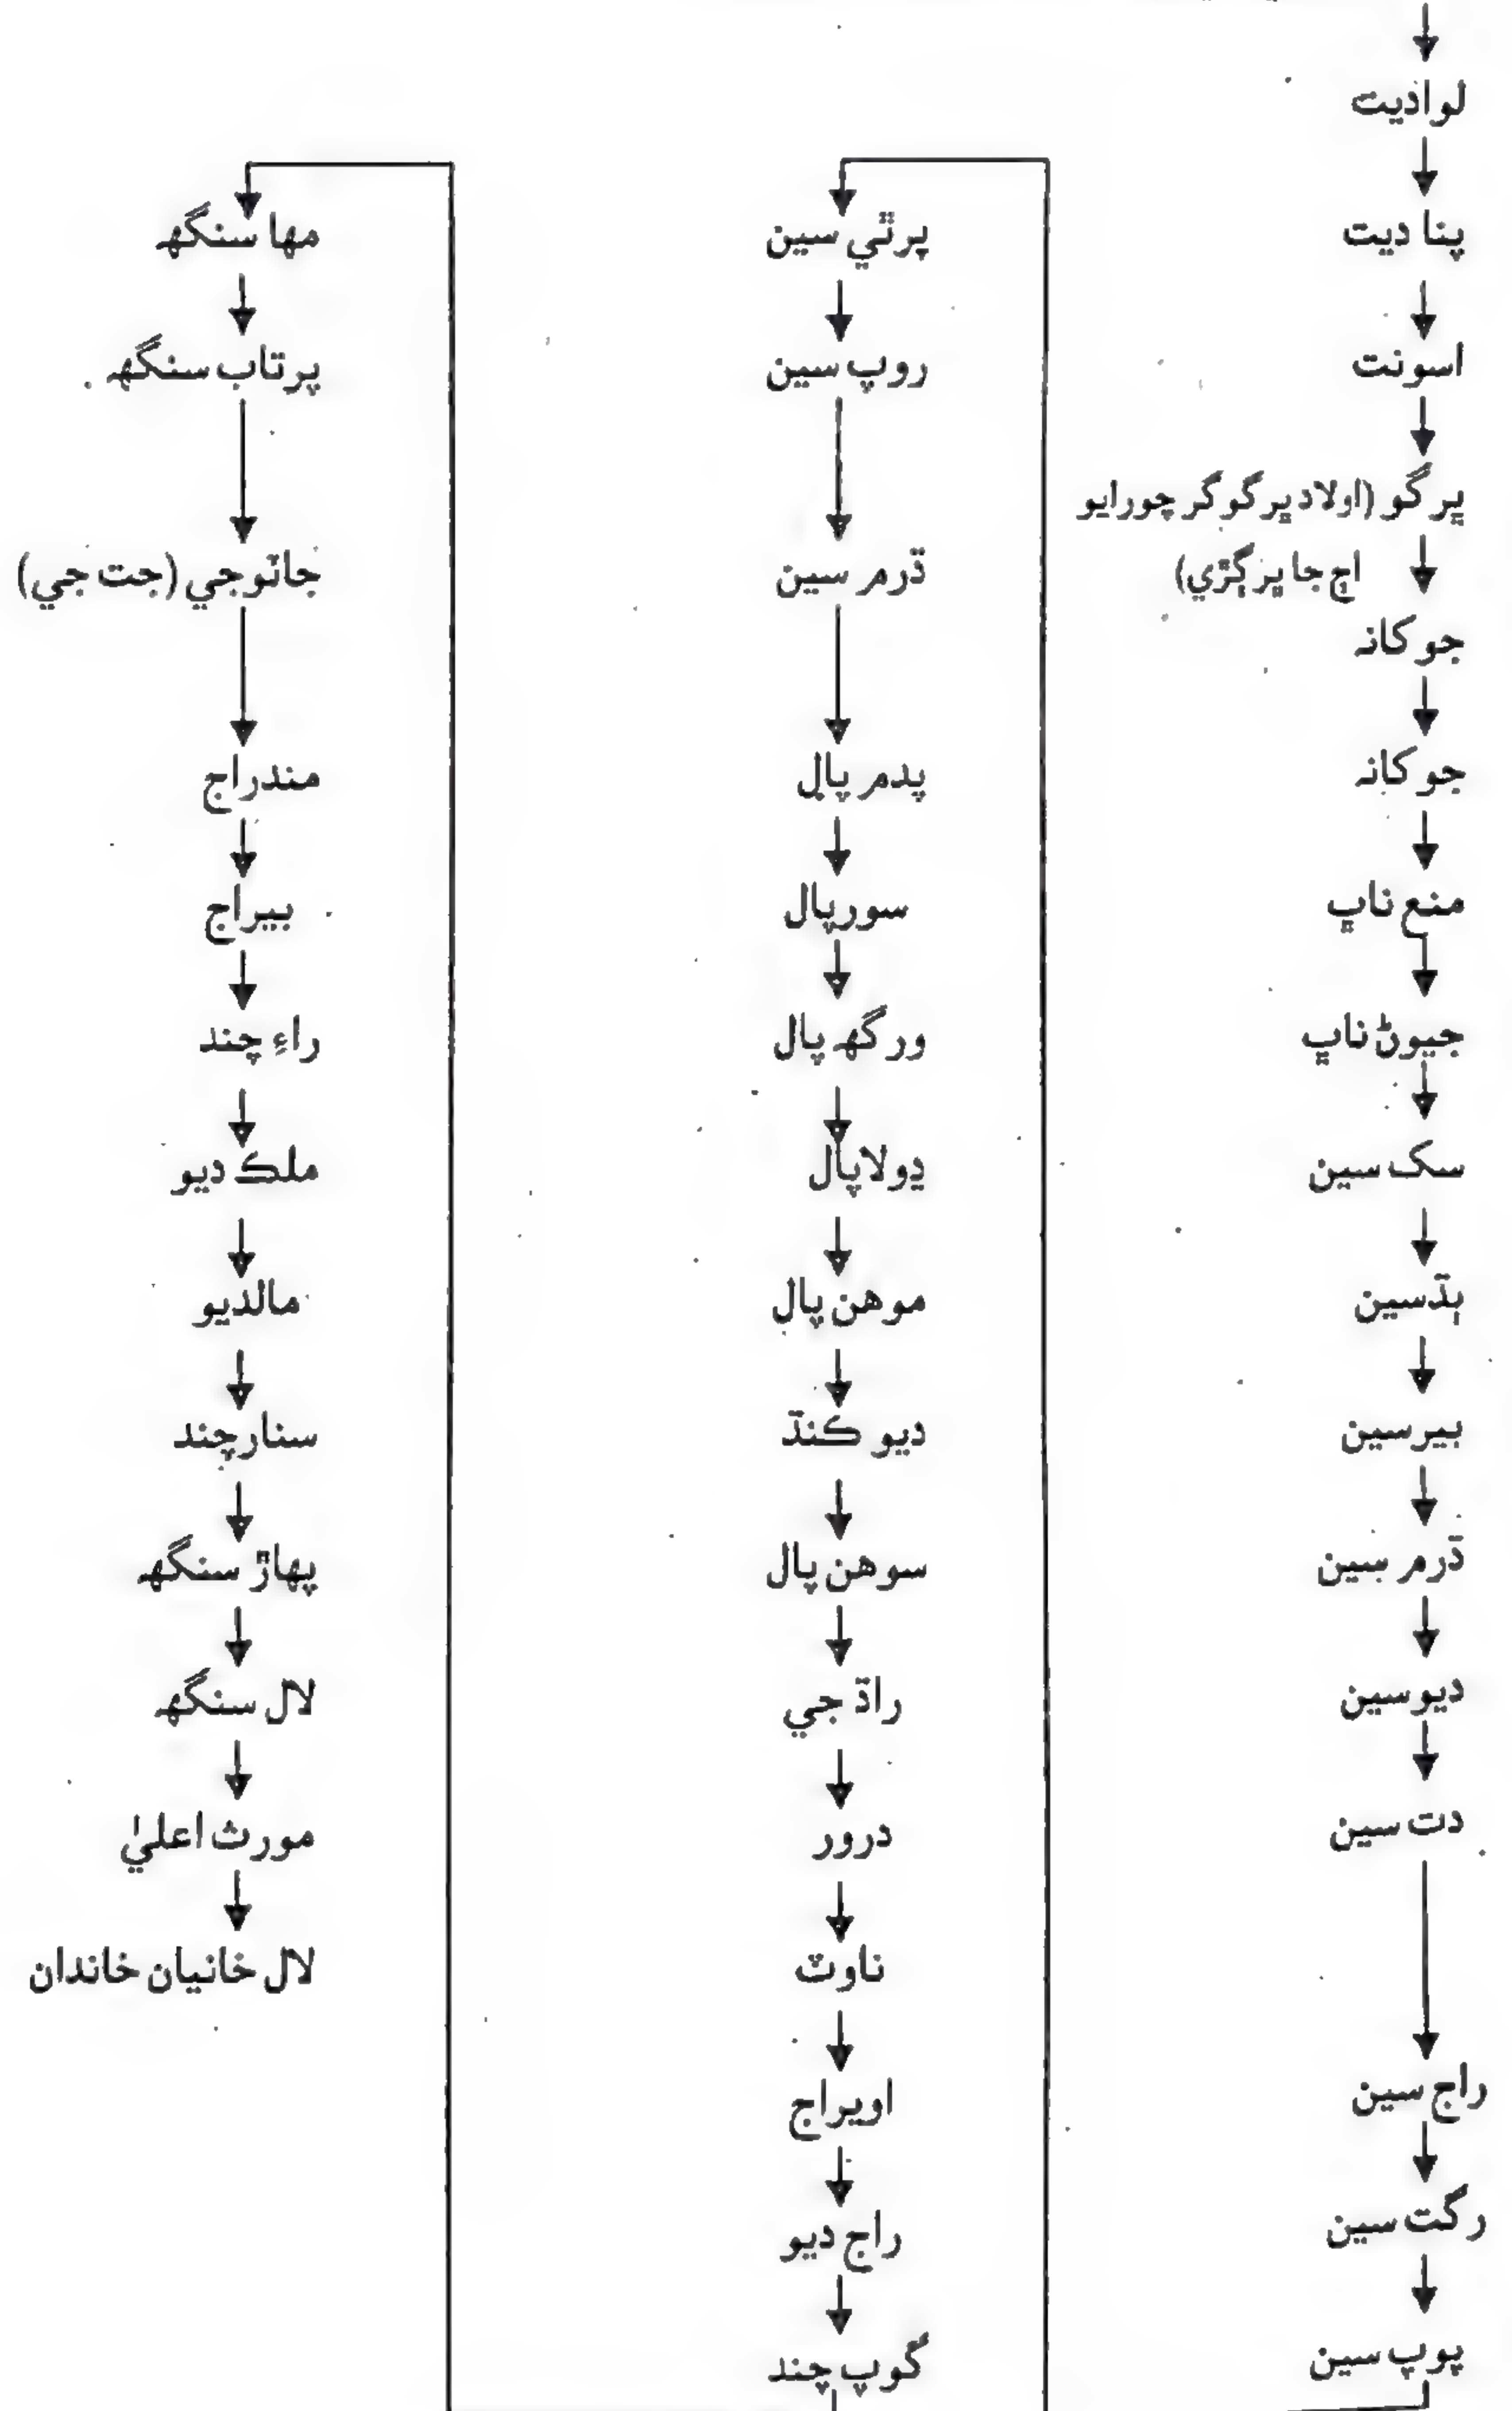 لواديت
پنا ديت
اسونت
ڀرگو (اولاد ڀرگو گر چورايو
اڄ جا ڀرڳڙي)
جوکانہ
جوکانہ
منع ناڀ
جيوڻ ناڀ
سک سين
ٻڌسين
بيرسين
ڌرم سين
ديوسين
دت سين
راج سين
رگت سين
پوپ سين
پرٿي سين
روپ سين
ڌرم سين
پدم پال
سورپال
ورگھ پال
ڍولاپال
موهن پال
ديو ڪنڌ
سوهن پال
راڌ جي
درور
ناوٽ
اويراج
راج ديو
گوپ چند
مها سنگھ
پرتاب سنگھ
جاٽوجي (جت جي)
مندراج
بيراج
راءِ چند
ملڪ ديو
مالديو
سنارچند
پهاڙ سنگھ
لال سنگھ
مورث اعليٰ
لال خانيان خاندان